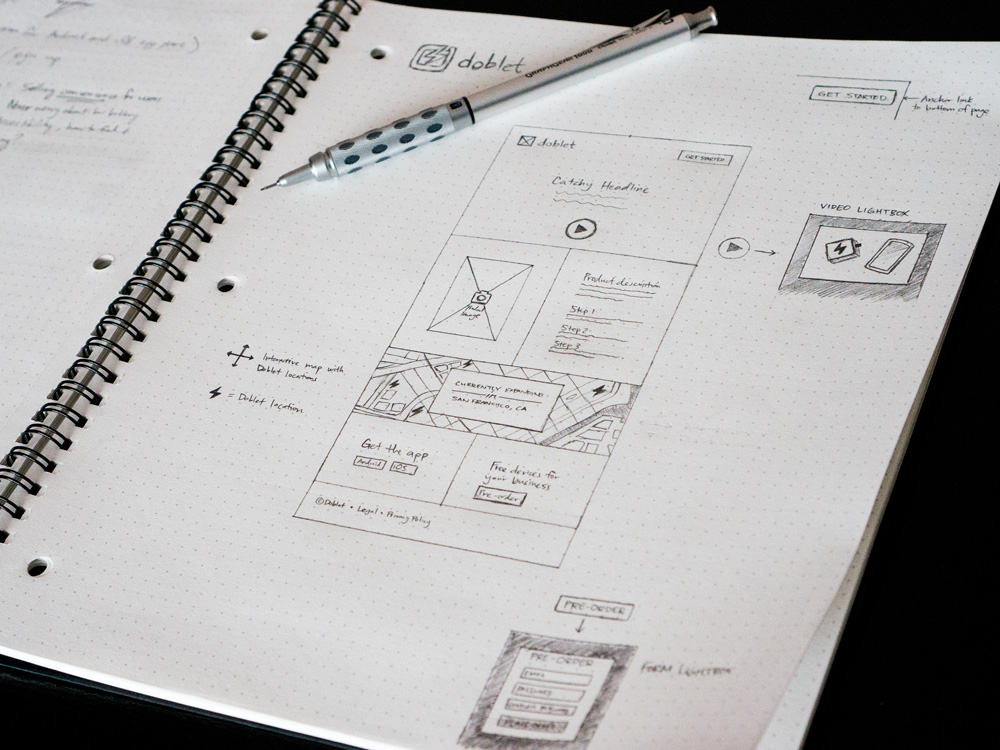 Selling convenience for users
doblet
GRAPHGEAR 1000
GET STARTED
Anchor link
to bottom of page
doblet
GET STARTED
Catchy Headline
VIDEO LIGHTBOX
Product description
Step 1
Step 2
Step 3
Interactive map with
Doblet locations
= Doblet location
CURRENTLY EXPANDING
IN
SAN FRANCISCO, CA
Get the app
Android iOS
Free devices for
your business
Pre-order
©Doblet • Legal • Privacy Policy
PRE-ORDER
PRE-ORDER
EMAIL
FORM LIGHTBOX